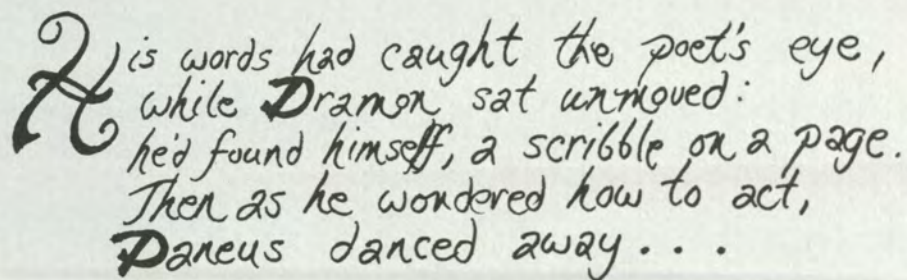 His words had caught the poet's eye,
while Dramon sat unmoved:
he'd found himself, a scribble on a page.
Then as he wondered how to act,
Daneus danced away . . .